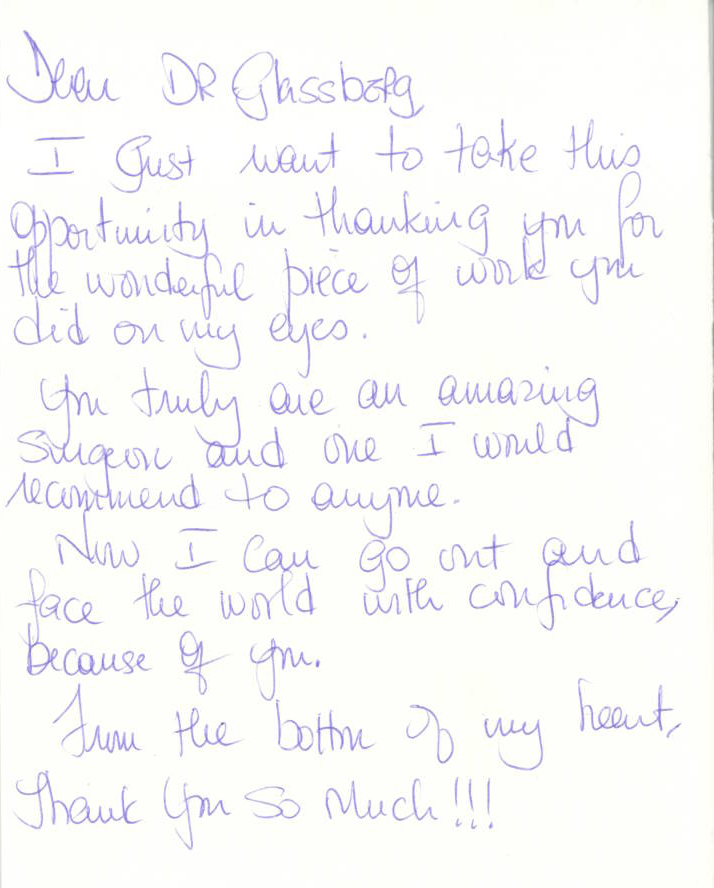 Dear DR Glassberg,
I Just want to take this
opportunity in thanking you for
the wonderful piece of work you
did on my eyes.
You truly are an amazing
Surgeon and one I would
recommend to anyone.
Now I Can go out and
face the world with confidence,
because of you.
From the bottom of my heart,
Thank You So Much!!!